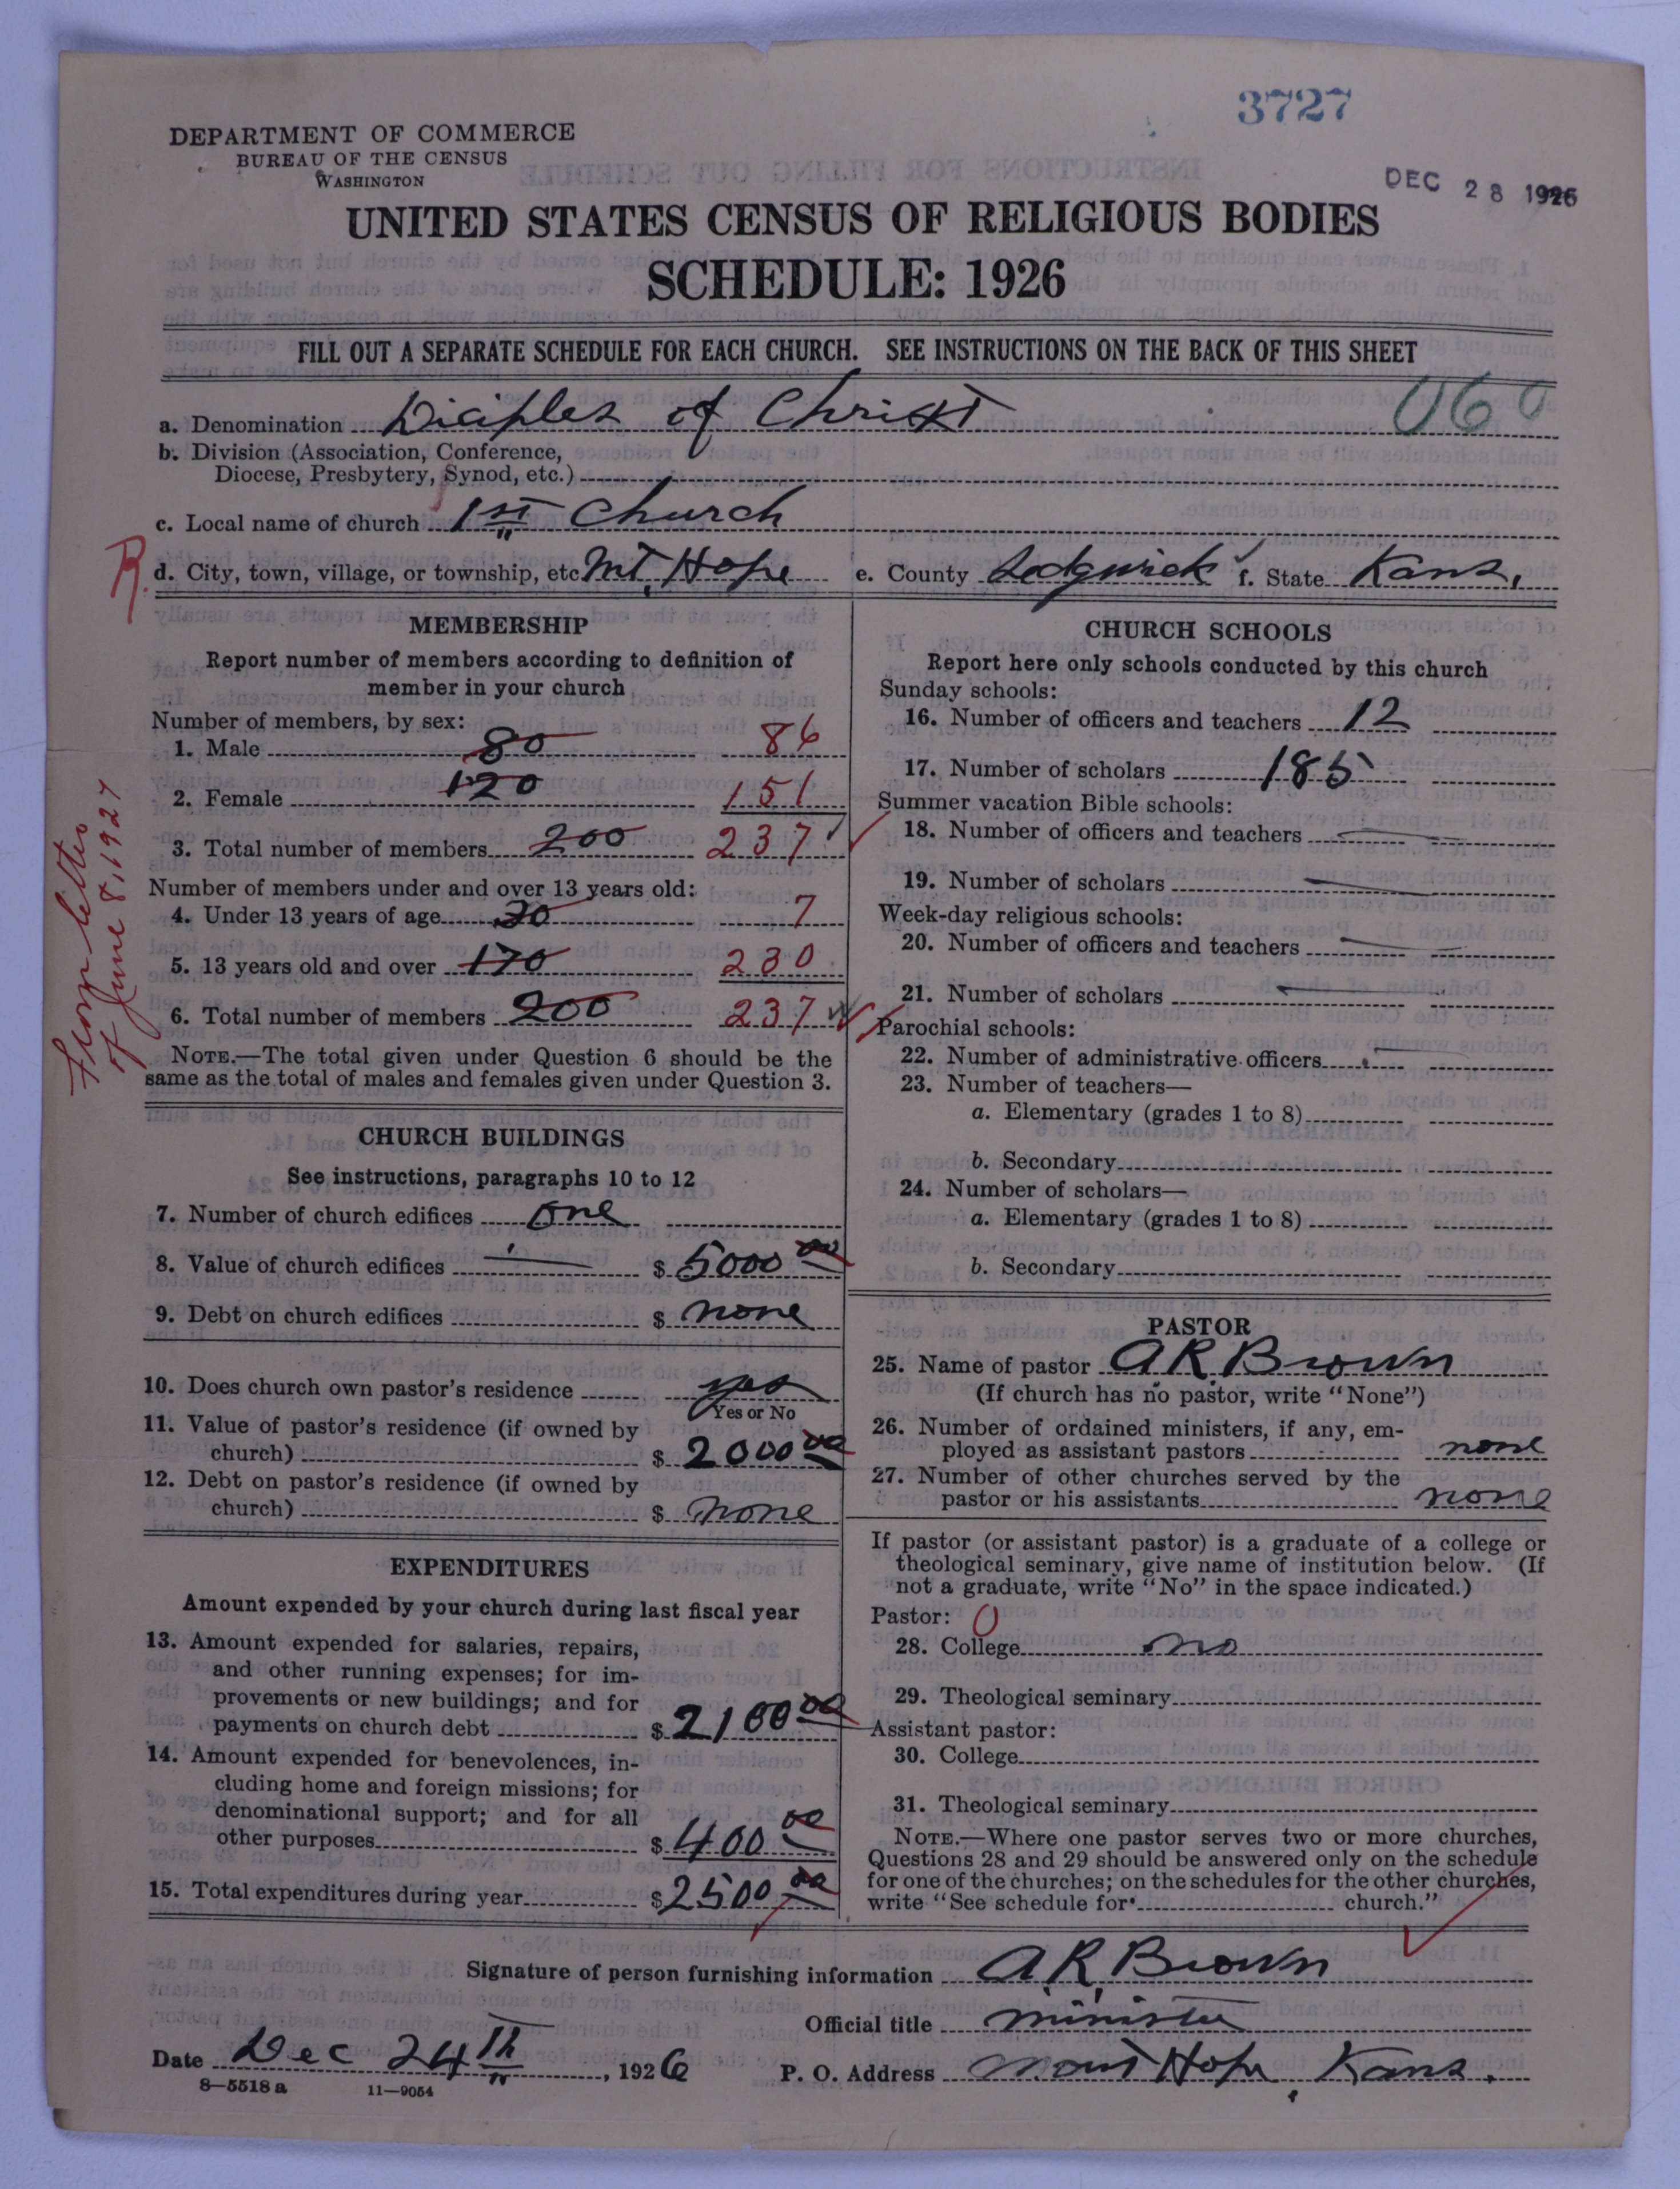 3727
DEPARTMENT OF COMMERCE
BUREAU OF THE CENSUS
WASHINGTON
DEC 28 1926
UNITED STATES CENSUS OF RELIGIOUS BODIES
SCHEDULE: 1926
FILL OUT A SEPARATE SCHEDULE FOR EACH CHURCH. SEE INSTRUCTIONS ON THE BACK OF THIS SHEET
060
a. Denomination Diciples of Christ
b. Division (Association, Conference,
Diocese, Presbytery, Synod, etc.)
c. Local name of church 1st Church
R. d. City, town, village, or township, etc. Mt. Hope e. County Sedgwick f. State Kans.
From letter
of June 8, 1927
MEMBERSHIP
Report number of members according to definition of
member in your church
Number of members, by sex:
1. Male 80 86
2. Female 120 151
3. Total number of members 200 237
Number of members under and over 13 years old:
4. Under 13 years of age 30 7
5. 13 years old and over 170 230
6. Total number of members 200 237
NOTE.—The total given under Question 6 should be the
same as the total of males and females given under Question 3.
CHURCH BUILDINGS
See instructions, paragraphs 10 to 12
7. Number of church edifices one
8. Value of church edifices $ 5000 00
9. Debt on church edifices $ none
10. Does church own pastor's residence yes
Yes or No
11. Value of pastor's residence (if owned by
church) $ 2000 00
12. Debt on pastor's residence (if owned by
church) $ none
EXPENDITURES
Amount expended by your church during last fiscal year
13. Amount expended for salaries, repairs,
and other running expenses; for im-
provements or new buildings; and for
payments on church debt $ 2100 00
14. Amount expended for benevolences, in-
cluding home and foreign missions; for
denominational support; and for all
other purposes $ 400 00
15. Total expenditures during year $ 2500 00
CHURCH SCHOOLS
Report here only schools conducted by this church
Sunday schools:
16. Number of officers and teachers 12
17. Number of scholars 185
Summer vacation Bible schools:
18. Number of officers and teachers
19. Number of scholars
Week-day religious schools:
20. Number of officers and teachers
21. Number of scholars
Parochial schools:
22. Number of administrative officers
23. Number of teachers—
a. Elementary (grades 1 to 8)
b. Secondary
24. Number of scholars—
a. Elementary (grades 1 to 8)
b. Secondary
PASTOR
25. Name of pastor A R Brown
(If church has no pastor, write "None")
26. Number of ordained ministers, if any, em-
ployed as assistant pastors none
27. Number of other churches served by the
pastor or his assistants none
If pastor (or assistant pastor) is a graduate of a college or
theological seminary, give name of institution below. (If
not a graduate, write "No" in the space indicated.)
Pastor: 0
28. College no
29. Theological seminary
Assistant pastor:
30. College
31. Theological seminary
NOTE.—Where one pastor serves two or more churches,
Questions 28 and 29 should be answered only on the schedule
for one of the churches; on the schedules for the other churches,
write "See schedule for church."
Signature of person furnishing information A. R. Brown
Official title minister
Date Dec 24th, 1926 P. O. Address Mount Hope, Kans.
8—5518 a 11—9054